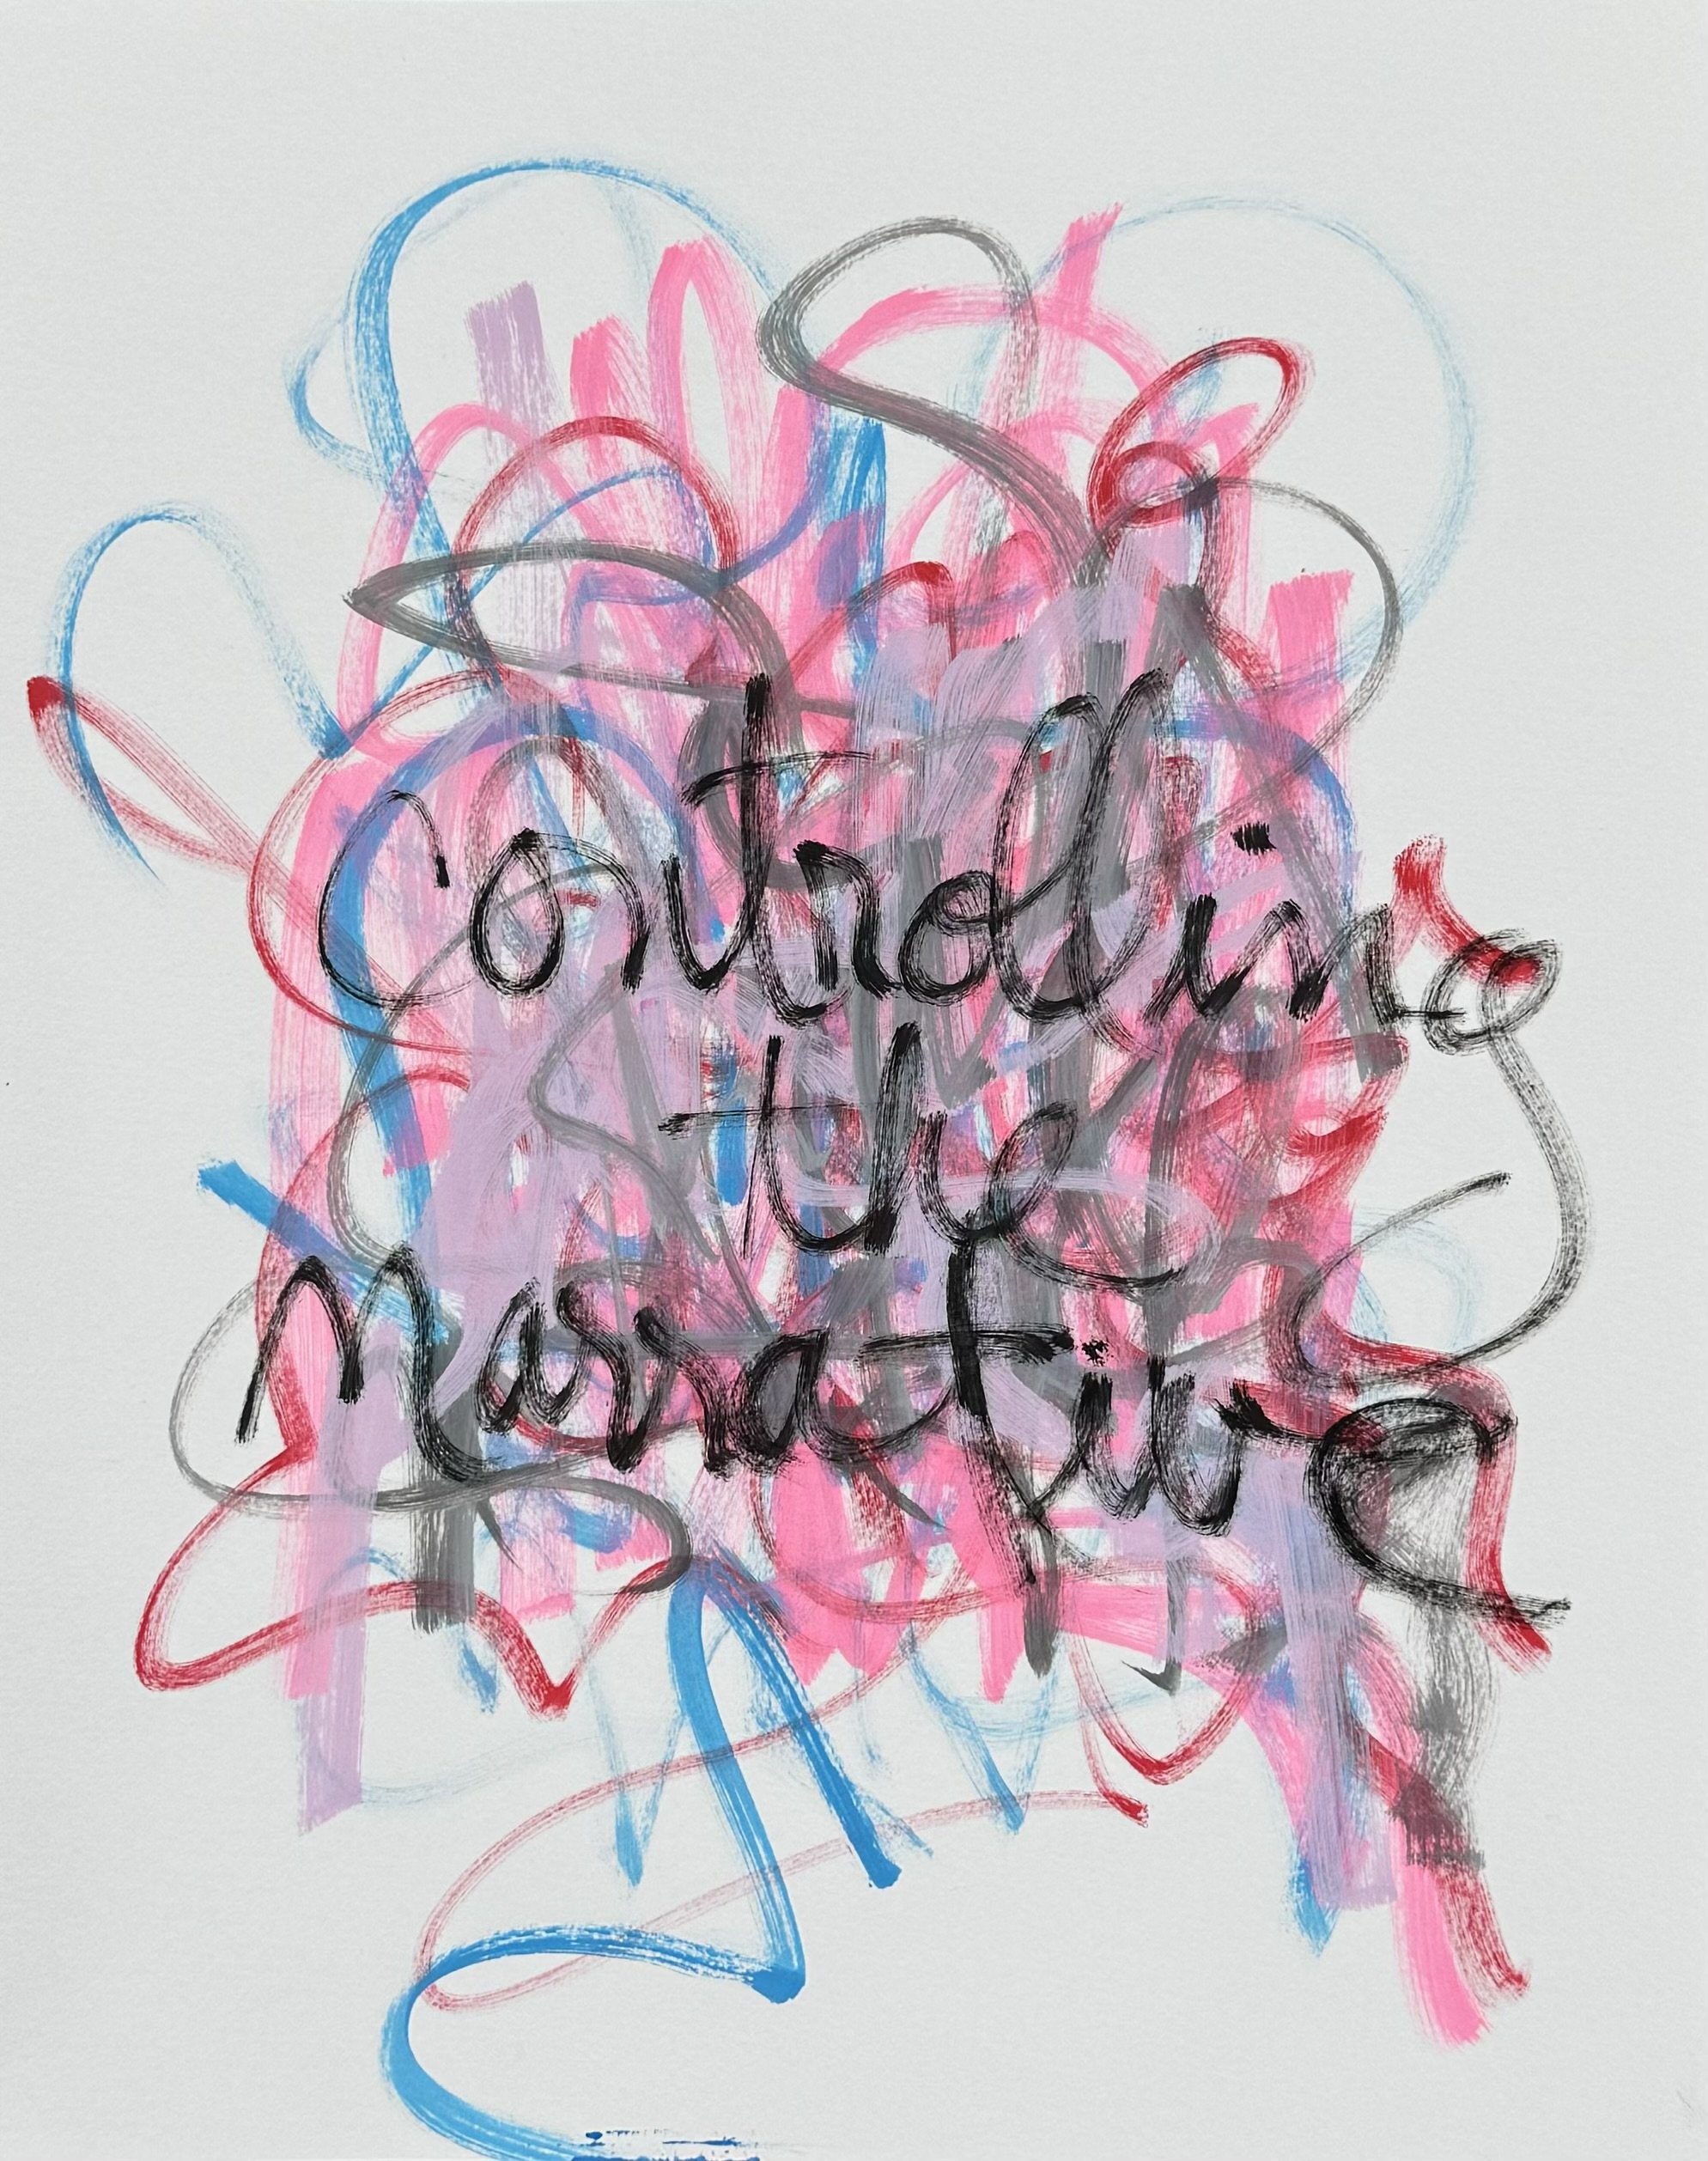 Controlling
the
Narrative